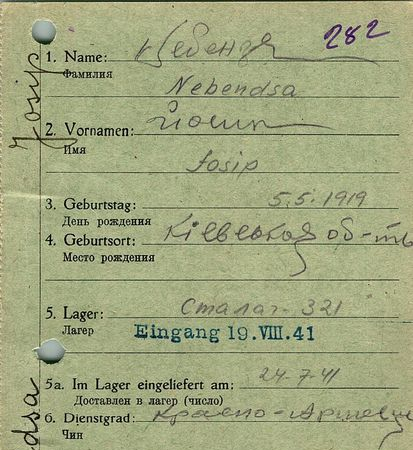 282
1. Name:
Фамилия
Nebendsa
2. Vornamen: Йосип
Имя
Josip
Josip
3. Geburtstag: 5.5.1919
День рождения
4. Geburtsort: Кіевская об-ть
Место рождения
5. Lager: Сталаг 321
Лагер
Eingang 19.VIII.41
5a. Im Lager eingeliefert am: 24-7-41
Доставлен в лагер (число)
6. Dienstgrad: Красно-Армеец
Чин